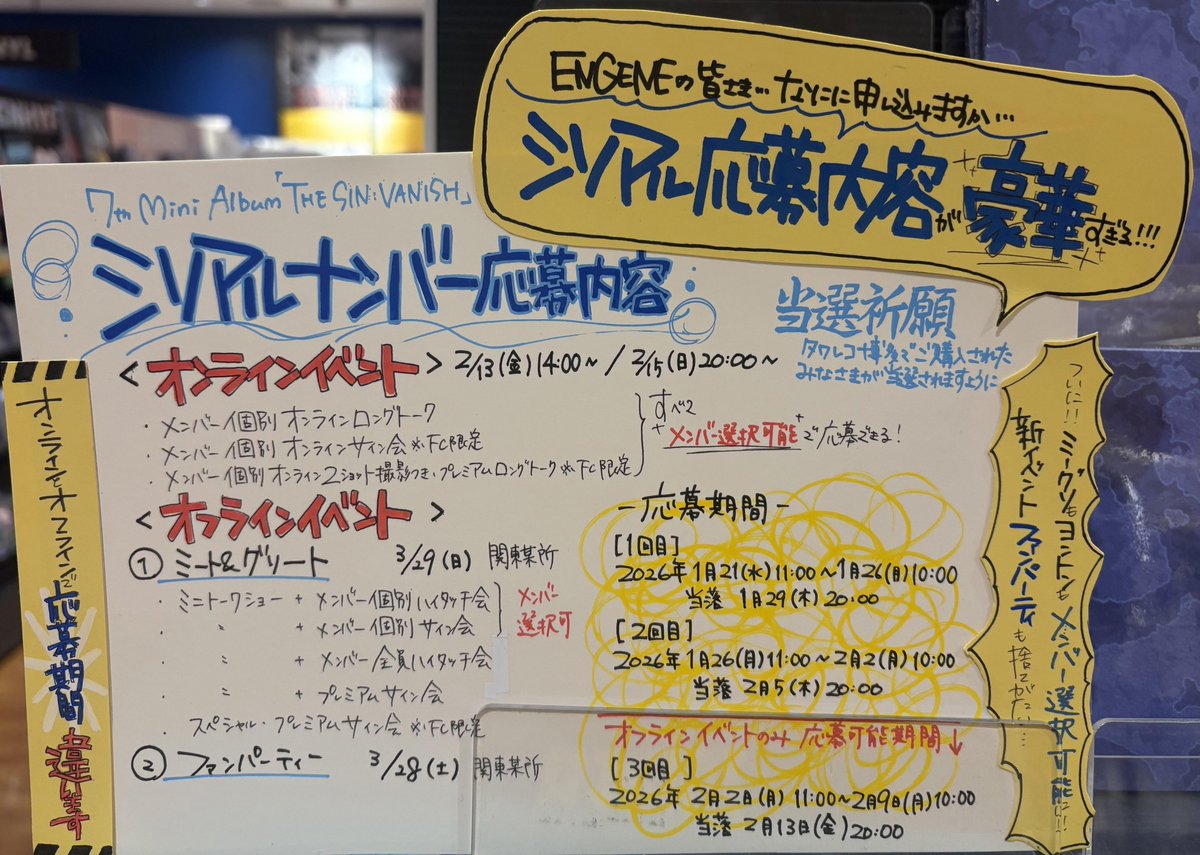 ENGENEの皆さま… なにに申し込みますか…
シリアル応募内容が豪華すぎる!!!
7th Mini Album「THE SIN:VANISH」
シリアルナンバー応募内容
当選祈願
タワレコ博多でご購入された
みなさまが当選されますように
<オンラインイベント> 2/13(金)14:00~/2/15(日)20:00~
・メンバー個別オンラインロングトーク
・メンバー個別オンラインサイン会※FC限定
・メンバー個別オンライン2ショット撮影つき・プレミアムロングトーク※FC限定
すべて
メンバー選択可能で応募できる!
<オフラインイベント>
① ミート&グリート 3/29(日) 関東某所
・ミニトークショー + メンバー個別ハイタッチ会
・ 〃 + メンバー個別サイン会
メンバー
選択可
・ 〃 + メンバー全員ハイタッチ会
・ 〃 + プレミアムサイン会
・スペシャル・プレミアムサイン会※FC限定
② ファンパーティー 3/28(土) 関東某所
-応募期間-
[1回目]
2026年1月21(水)11:00~1月26(月)10:00
当落 1月29(木)20:00
[2回目]
2026年1月26(月)11:00~2月2(月)10:00
当落 2月5(木)20:00
オンラインイベントのみ 応募可能期間↓
[3回目]
2026年2月2日(月)11:00~2月9日(月)10:00
当落 2月13日(金)20:00
オンラインとオフラインで応募期間違います
ついに!!ミーグリもヨントンもメンバー選択可能に!!
新イベントファンパーティも捨てがたい…